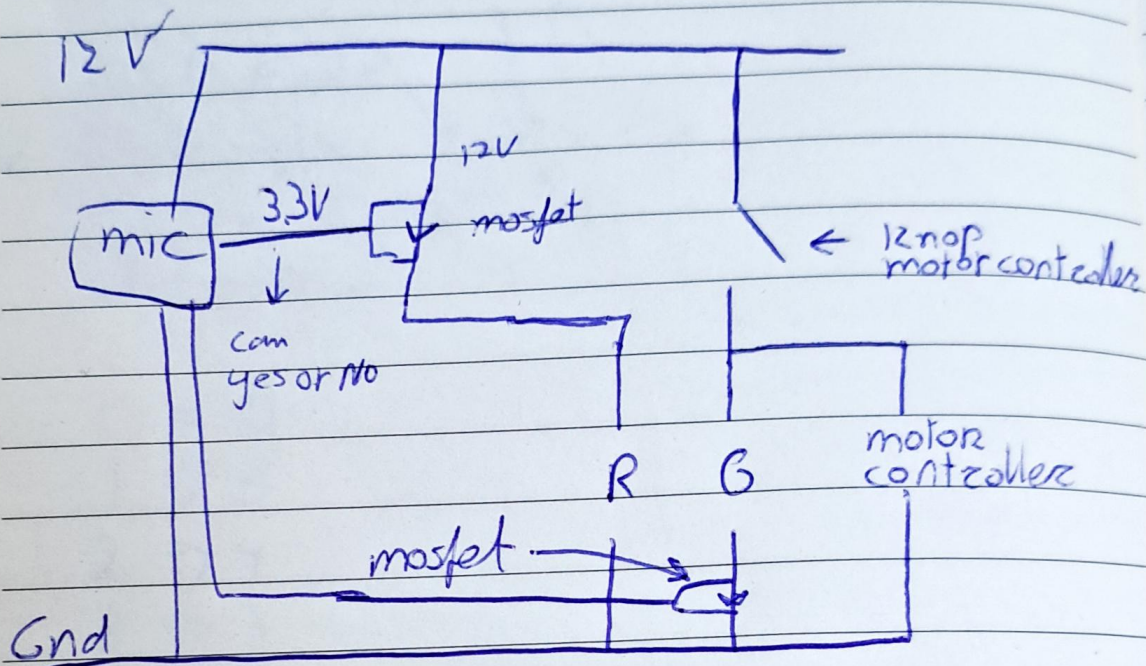 12 V
12V
3.3V
mosfet
mic
knop
motorcontroller
can
yes or No
R G
motor
controller
mosfet
Gnd